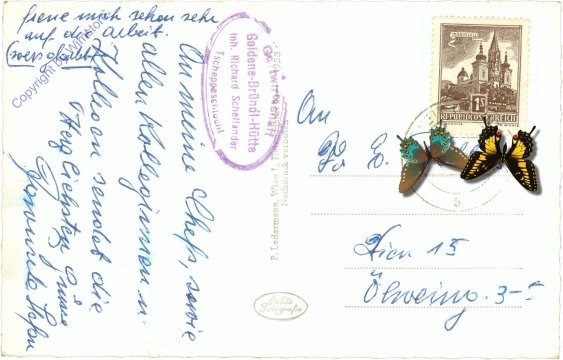 freue mich schon sehr
auf die Arbeit.
(wers glaubt)
Copyright by Winkler
An meine Chefs, sowie
allen Kolleginnen u.
Kollegen sendet die
Herzlichsten Grüsse
Goldene-Bründl-Hütte
Inh. Richard Schellander
Tscheppaschlucht
P. Ledermann, Wien I,
Nachdruck verboten
Echte
Fotografie
REPUBLIK ÖSTERREICH
1S
An
Fa. E.
Wien 15
Ölweing. 3-5